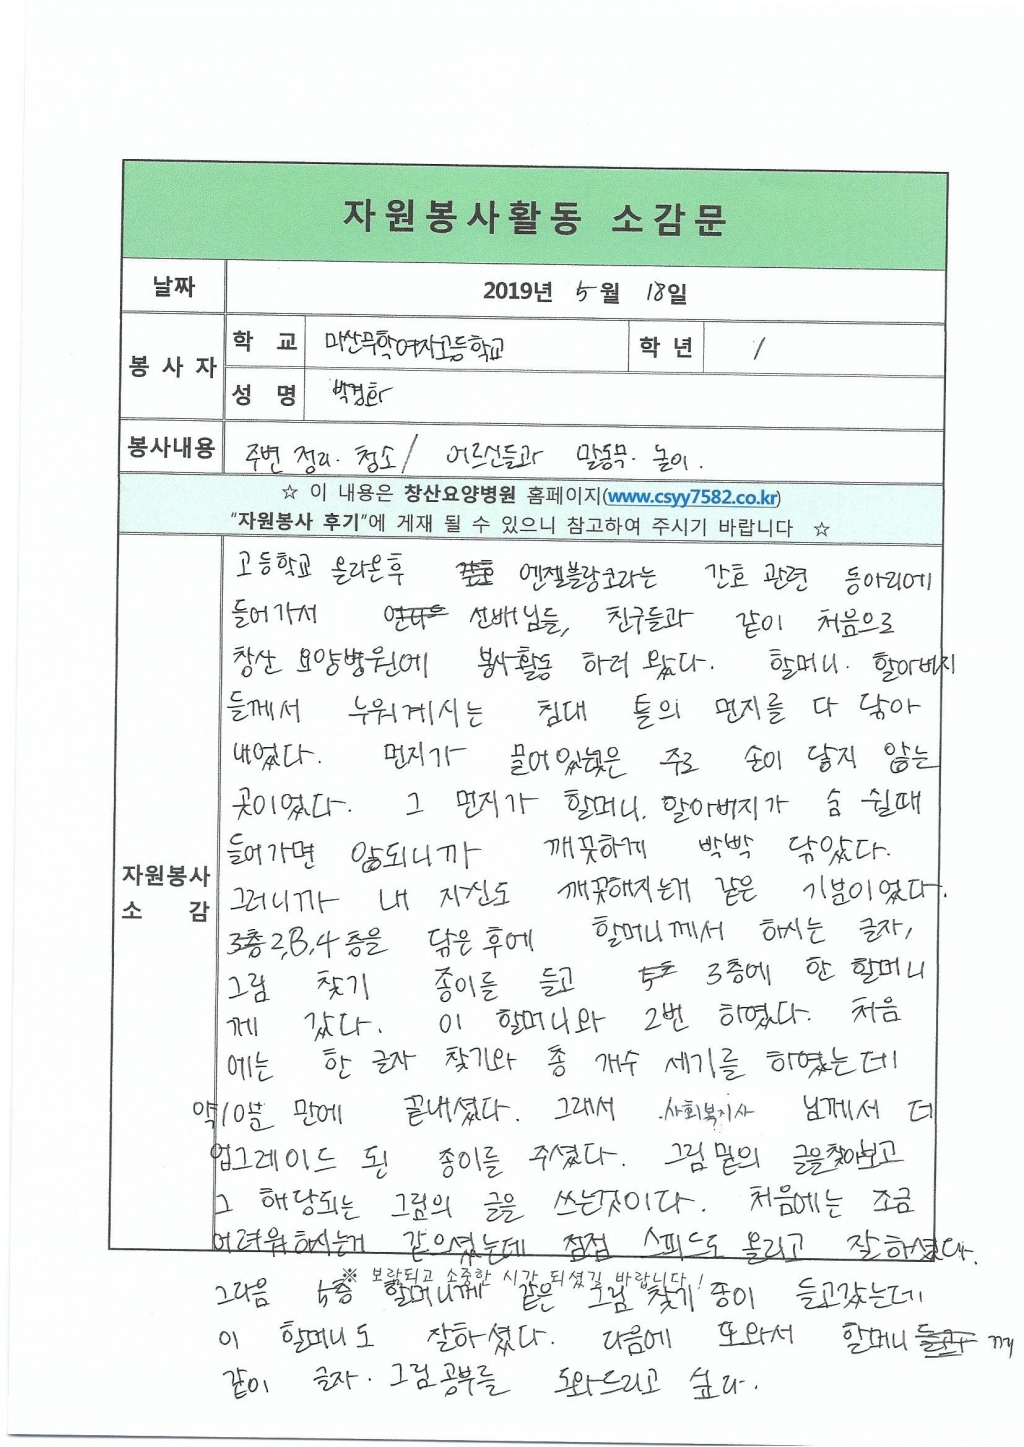 자원봉사활동 소감문
날짜 2019년 5월 18일
봉사자 학교 마산무학여자고등학교 학년 1
성명 박경화
봉사내용 주변 정리·청소/ 어르신들과 말동무·놀이.
☆ 이 내용은 창산요양병원 홈페이지(www.csyy7582.co.kr)
"자원봉사 후기"에 게재 될 수 있으니 참고하여 주시기 바랍니다 ☆
자원봉사 소감
고등학교 올라온후 엔젤블랑코라는 간호 관련 동아리에
들어가서 선배님들, 친구들과 같이 처음으로
창산 요양병원에 봉사활동 하러 왔다. 할머니·할아버지
들께서 누워계시는 침대 틀의 먼지를 다 닦아
내었다. 먼지가 끌어있는곳은 주로 손이 닿지 않는
곳이었다. 그 먼지가 할머니, 할아버지가 숨 쉴때
들어가면 않되니까 깨끗하게 박빡 닦았다.
그러니까 내 자신도 깨끗해지는거 같은 기분이었다.
3층2,B,4층을 닦은후에 할머니께서 하시는 글자,
그림 찾기 종이를 들고 3층에 한 할머니
께 갔다. 이 할머니와 2번 하였다. 처음
에는 한 글자 찾기와 총 개수 세기를 하였는데
약10분 만에 끝내셨다. 그래서 사회복지사 님께서 더
업그레이드 된 종이를 주셨다. 그림밑의 글을찾아보고
그 해당되는 그림의 글을 쓰는것이다. 처음에는 조금
어려워하시는거 같으셨는데 점점 스피드도 올리고 잘하셨다.
※ 보람되고 소중한 시간 되셨길 바랍니다!
그다음 5층 할머니께 같은 그림 찾기 종이 들고갔는데
이 할머니도 잘하셨다. 다음에 또와서 할머니 께
같이 글자·그림공부를 도와드리고 싶다.